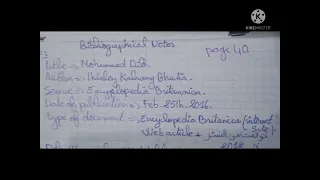 Bibliographical Notes
page 40
Title => Mohammed Dib.
Author => Thinley Kalsang Bhutia.
Source => Encyclopedia Britannica.
Date of publication => Feb. 25th. 2016.
Type of document => Encyclopedia Britanica (internet
Web article +
2018
KINEMASTER